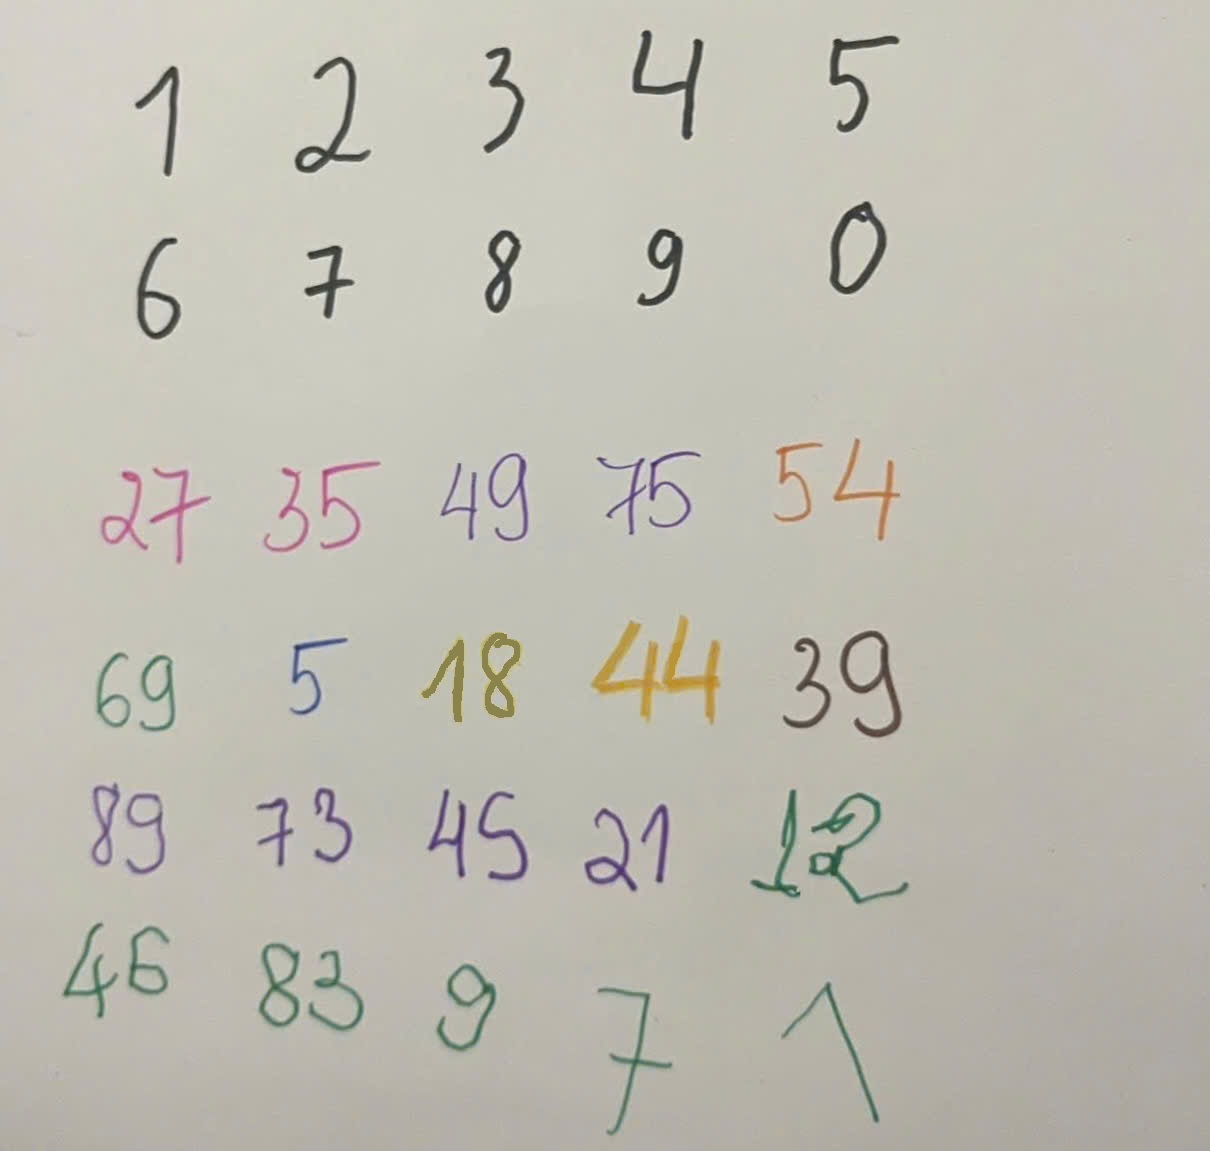 1 2 3 4 5
6 7 8 9 0
27 35 49 75 54
69 5 18 44 39
89 73 45 21 12
46 83 9 7 1